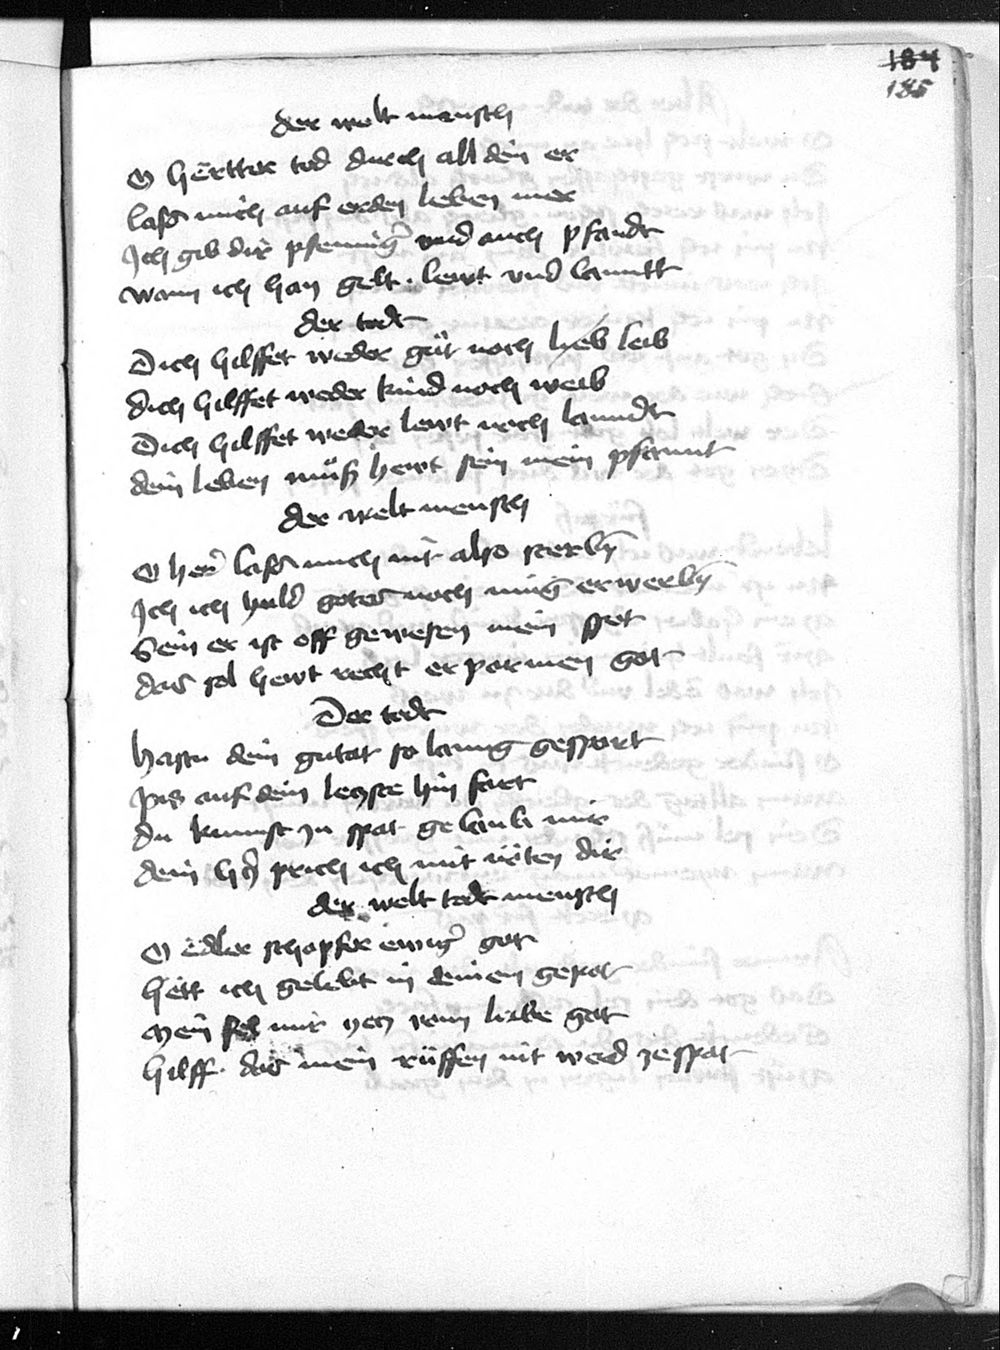 184
185
der welt mensch
O hërtter tod durch all dein er
lass mich auf erden leben mer
Ich gib dir pfenning vnd auch pfandt
wann ich han gelt lewt vnd lanntt
der todt
Dich hilffet weder gůt noch lieb leib
dich hilffet weder kind noch weib
Dich hilffet weder lewt noch lanndt
dein leben můß hewt sein mein pfannt
der welt mensch
O her lass mich nit also sterbn
Ich ich huld gotes noch mug erwerbn
Sein er ist offt gewesen mein spot
das sol hewt recht erparmen got
Der todt
Hastu dein gutat so lanng gespart
Pis auf dein leczste hin fart
du kumst zu spat gelaub mir
dein hercz prich ich mit nöten dir
der welt todt mensch
O Edler schopfer ewiger got
hëtt ich gelebt in deinen gepot
Mein sel mir yecz vom leibe gat
hilff das mein rüffen nit werd ze spat